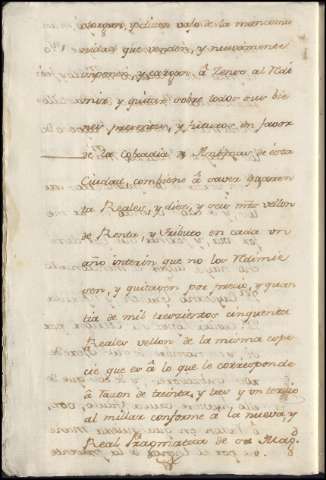 otorgan, y dicen vajo de la mancomu
nidad que venden, y nuevamente
imponen, y cargan â Zenso al Rdi
mir, y quitar sobre todos sus bie
nes presentes, y futuros en favor
de la Cofradia de de ésta
Ciudad, combiene â saver quaren
ta Reales, y diez, y seis mrs vellon
de Renta, y tributo en cada un
año interin que no los Rdimie
sen, y quitasen por precio, y quan
tia de mil trescientos cinquenta
Reales vellon de la misma espe
cie que es â lo que le corresponde
â razon de treinta, y tres y un tercio
al millar conforme â la nueva, y
Real Pragmatica de su Magd.